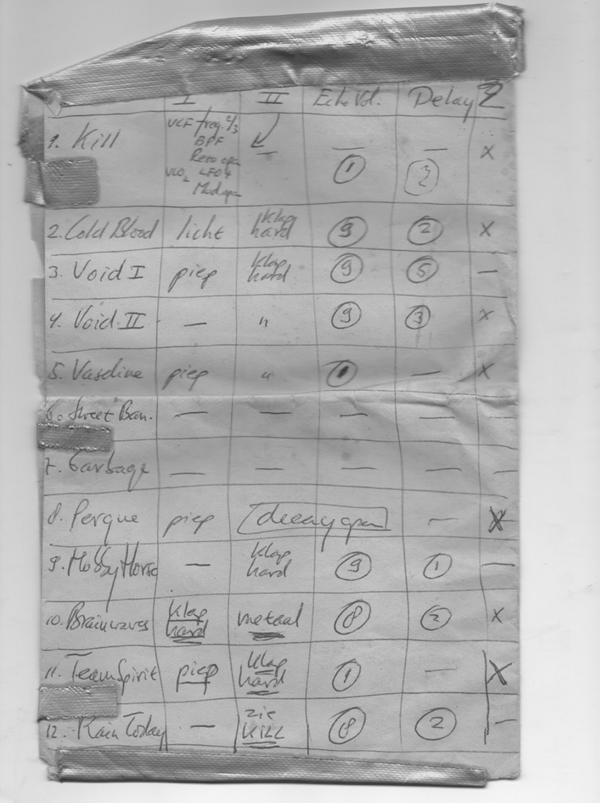 I II Echo Vol. Delay 2
1. Kill VCF freq. 2/3 — — — x
BPF
Reso open
VCO2 LFO 4 1 3
Mod open
2. Cold Blood licht klap 9 2 x
hard
3. Void I piep klap 9 5 —
hard
4. Void II — " 9 3 x
5. Vaseline piep " 1 — x
6. Street Ban. — — — — —
7. Garbage — — — — —
8. Perque piep decay open — x
9. Hobby Horse — klap 9 1 —
hard
10. Brainwaves klap metaal 8 2 x
hard
11. Team Spirit piep klap 1 — x
hard
12. Rain Today — zie 8 2 —
KILL